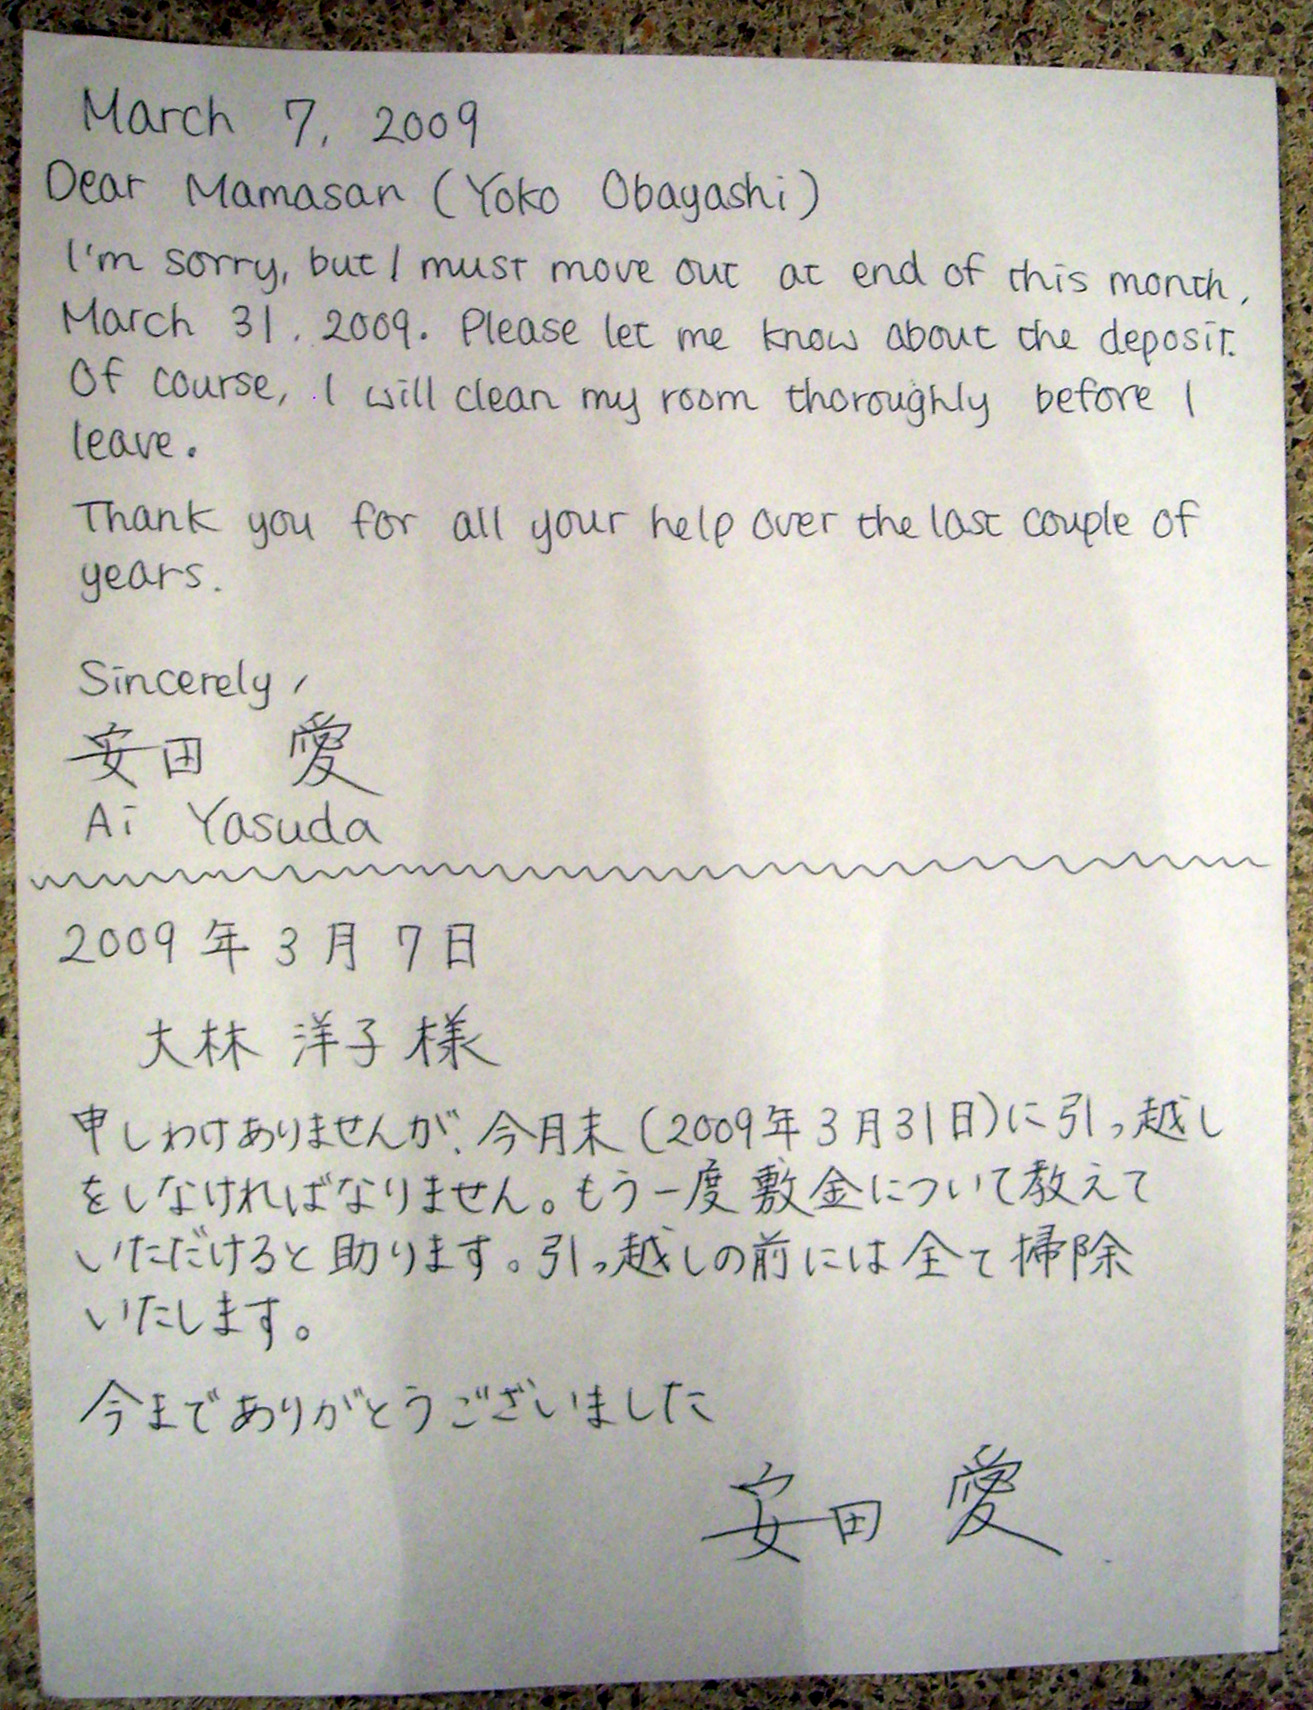 March 7, 2009
Dear Mamasan (Yoko Obayashi)
I'm sorry, but I must move out at end of this month,
March 31, 2009. Please let me know about the deposit.
Of course, I will clean my room thoroughly before I
leave.
Thank you for all your help over the last couple of
years.
Sincerely,
安田 愛
Ai Yasuda
2009年3月7日
大林 洋子 様
申しわけありませんが、今月末(2009年3月31日)に引っ越し
をしなければなりません。もう一度敷金について教えて
いただけると助ります。引っ越しの前には全て掃除
いたします。
今までありがとうございました
安田 愛